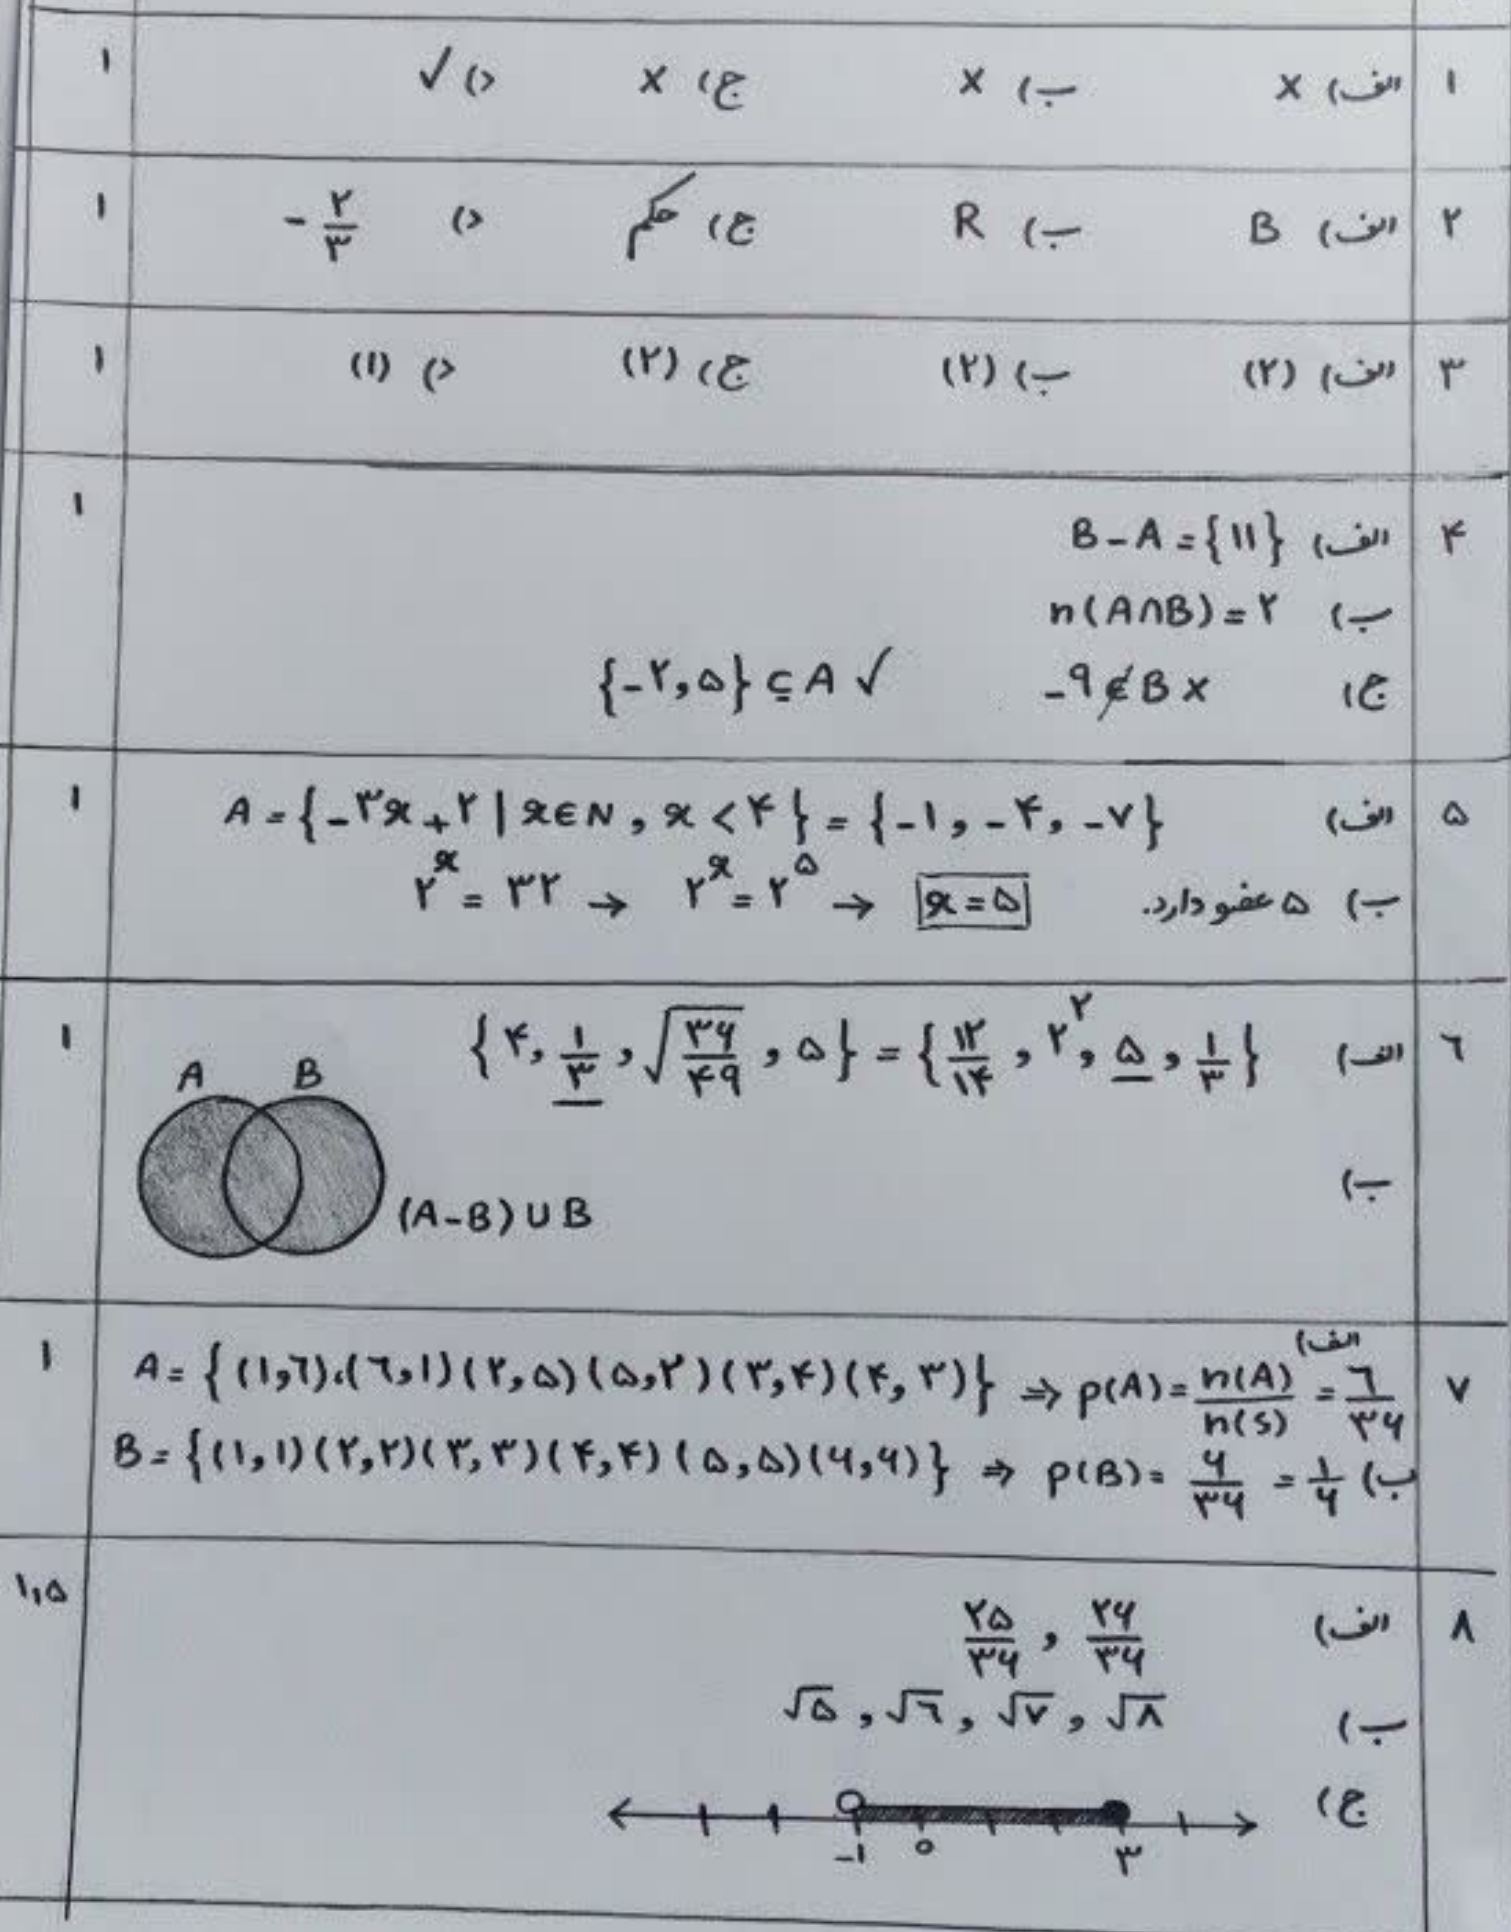 ۱ الف) × ب) × ج) × د) ✓ ۱
۲ الف) B ب) R ج) حکم د) -۲/۳ ۱
۳ الف) (۲) ب) (۲) ج) (۲) د) (۱) ۱
۴ الف) B-A={۱۱} ۱
ب) n(A∩B)=۲
ج) -۹∉B × {-۲,۵}⊆A ✓
۵ الف) A={-۳x+۲|x∈N, x<۴}={-۱,-۴,-۷} ۱
ب) ۵ عضو دارد. ۲^x=۳۲ → ۲^x=۲^۵ → x=۵
۶ الف) {۴, ۱/۳, √(۳۶/۴۹), ۵}={۱۲/۱۴, ۲^۲, ۵, ۱/۳} ۱
A B
ب) (A-B)∪B
۷ الف) A={(۱,۶),(۶,۱)(۲,۵)(۵,۲)(۳,۴)(۴,۳)} ⇒ p(A)=n(A)/n(S)=۶/۳۶ ۱
ب) B={(۱,۱)(۲,۲)(۳,۳)(۴,۴)(۵,۵)(۶,۶)} ⇒ p(B)=۶/۳۶=۱/۶
۸ الف) ۲۵/۳۶ , ۲۶/۳۶ ۱,۵
ب) √۵, √۶, √۷, √۸
ج) -۱ ۰ ۳